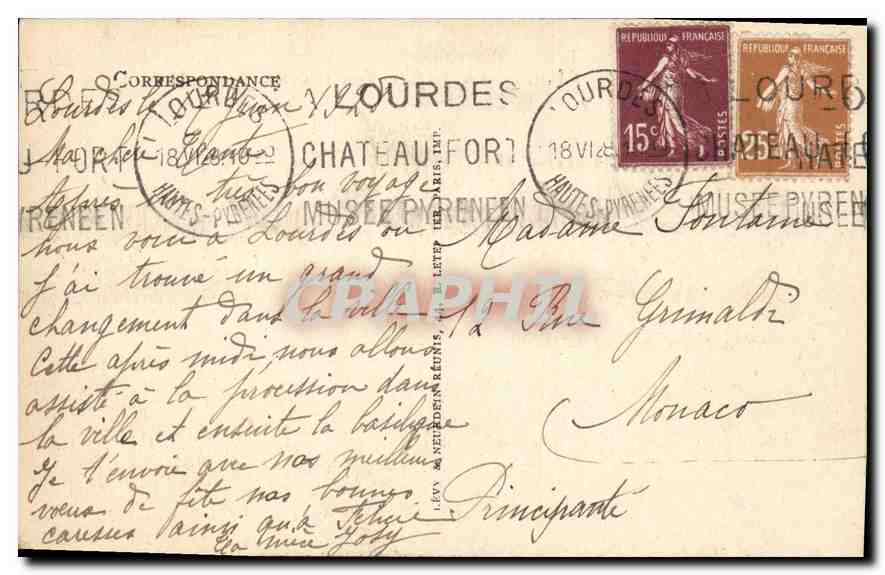 CORRESPONDANCE
Lourdes le 7 Juin
Ma chère Tante
Après un très bon voyage
nous voici à Lourdes où
j'ai trouvé un grand
changement dans la ville
Cette après midi, nous allons
assisté à la procession dans
la ville et ensuite la basilique
Je t'envoie que nos meilleurs
vœux de fête nos bonnes
caresses ainsi qu'à
ta nièce Josy
LÉVY & NEURDEIN RÉUNIS, 44, R. LETELLIER, PARIS, IMP.
REPUBLIQUE FRANÇAISE
15c
POSTES
REPUBLIQUE FRANÇAISE
25c
LOURDES
18 VI 28
HAUTES-PYRENEES
LOURDES
CHATEAU FORT
MUSEE PYRENEEN
LOURDES
18 VI 28
HAUTES-PYRENEES
LOURDES
CHATEAU
MUSEE PYREN
CRAPHIL
Madame Fontaine
12 Rue Grimaldi
Monaco
Principauté